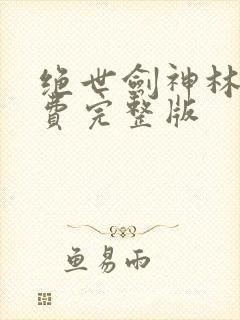 绝世劍神林
費完整版
鱼易雨